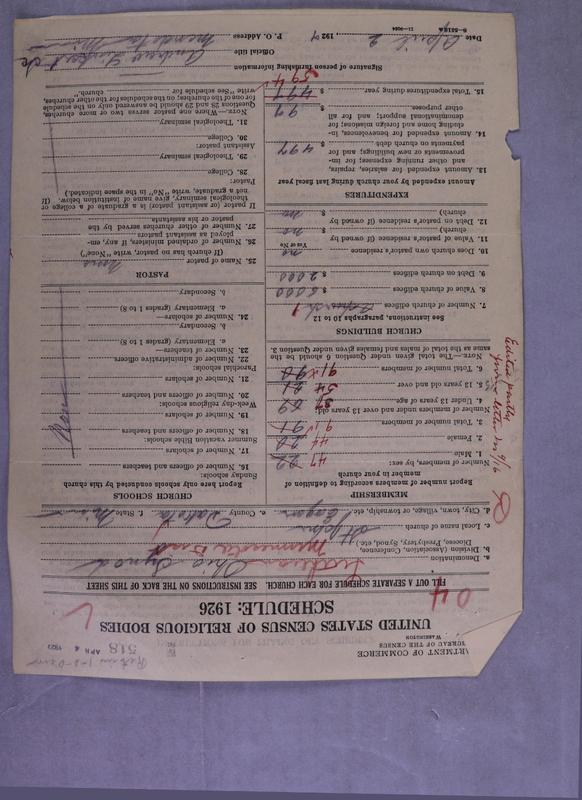 DEPARTMENT OF COMMERCE
BUREAU OF THE CENSUS
WASHINGTON
518 APR 4 1927
UNITED STATES CENSUS OF RELIGIOUS BODIES
SCHEDULE: 1926
04
FILL OUT A SEPARATE SCHEDULE FOR EACH CHURCH. SEE INSTRUCTIONS ON THE BACK OF THIS SHEET
a. Denomination Lutheran Ohio Synod
b. Division (Association, Conference, Diocese, Presbytery, Synod, etc.) Minnesota Dist
c. Local name of church St John
d. City, town, village, or township, etc. Eagan e. County Dakota f. State Minn
MEMBERSHIP
Report number of members according to definition of member in your church
Number of members, by sex:
1. Male 47 22
2. Female 44 20
3. Total number of members 91
Number of members under and over 13 years old
4. Under 13 years of age 37 69
5. 13 years old and over 54 21
6. Total number of members 91 90
NOTE.—The total given under Question 6 should be the same as the total of males and females given under Question 3.
CHURCH BUILDINGS
See instructions, paragraphs 10 to 12
7. Number of church edifices 1
8. Value of church edifices $ 6000
9. Debt on church edifices $ 2000
10. Does church own pastor's residence no
Yes or No
11. Value of pastor's residence (if owned by church) $ no
12. Debt on pastor's residence (if owned by church) $ no
EXPENDITURES
Amount expended by your church during last fiscal year
13. Amount expended for salaries, repairs, and other running expenses; for improvements or new buildings; and for payments on church debt $ 497
14. Amount expended for benevolences, including home and foreign missions; for denominational support; and for all other purposes $ 97
15. Total expenditures during year $ 497 594
CHURCH SCHOOLS
Report here only schools conducted by this church
Sunday schools:
16. Number of officers and teachers
17. Number of scholars
Summer vacation Bible schools:
18. Number of officers and teachers
19. Number of scholars
Week-day religious schools:
20. Number of officers and teachers
21. Number of scholars
Parochial schools:
22. Number of administrative officers
23. Number of teachers—
a. Elementary (grades 1 to 8)
b. Secondary
24. Number of scholars—
a. Elementary (grades 1 to 8)
b. Secondary
None
PASTOR
25. Name of pastor None
(If church has no pastor, write "None")
26. Number of ordained ministers, if any, employed as assistant pastor
27. Number of other churches served by the pastor or his assistants
If pastor (or assistant pastor) is a graduate of a college or theological seminary, give name of institution below. (If not a graduate, write "No" in the space indicated.)
Pastor:
28. College
29. Theological seminary
Assistant pastor:
30. College
31. Theological seminary
NOTE.—Where one pastor serves two or more churches, Questions 28 and 29 should be answered only on the schedule for one of the churches; on the schedules for the other churches, write "See schedule for church."
Signature of person furnishing information
Official title
Date April 2 1927 P. O. Address Mendota Minn